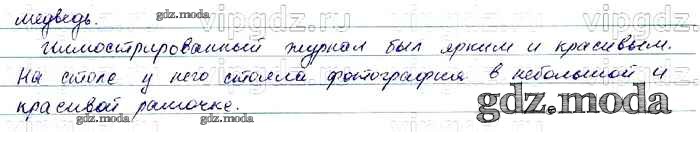 медведь.
Иллюстрированный журнал был ярким и красивым.
На столе у него стояла фотография в небольшой и
красивой рамочке.
gdz.moda
vipgdz.ru
vipgdz.ru
gdz.moda
gdz.moda
gdz.moda
gdz.moda